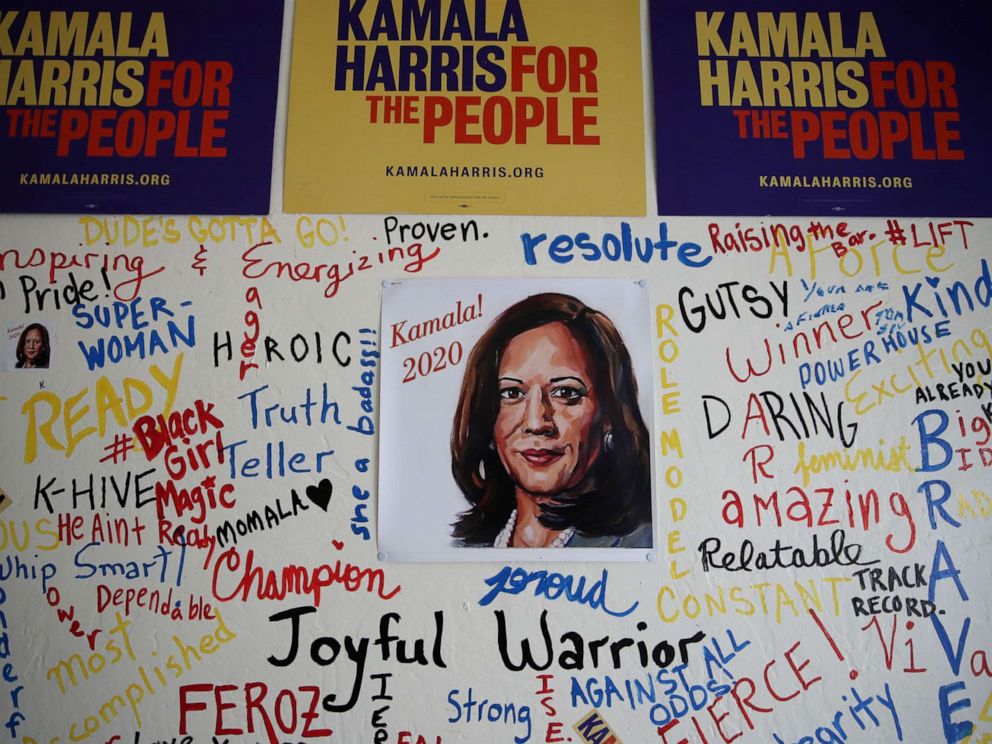 KAMALA
HARRIS FOR
THE PEOPLE
KAMALAHARRIS.ORG
KAMALA
HARRIS FOR
THE PEOPLE
KAMALAHARRIS.ORG
KAMALA
HARRIS FOR
THE PEOPLE
KAMALAHARRIS.ORG
DUDE'S GOTTA GO!
Proven.
resolute
Raising the Bar.
#LIFT
A Force
nspiring & Energizing
Pride!
SUPER-
WOMAN
Eager
HEROIC
Kamala!
2020
Kamala!
2020
K
ROLE MODEL
GUTSY
Winner
Kind
POWERHOUSE
Exciting
YOU
ALREADY
READY
#Black
Girl
Magic
Truth
Teller
she a badass!!
DARING
feminist
BRAVE
K-HIVE
MOMALA ♥
He Aint Ready
amazing
Whip Smart!
Champion
Relatable
TRACK
RECORD.
Dependable
proud
CONSTANT
most
accomplished
Joyful Warrior
FIERCE!
AGAINST ALL
ODDS!
FEROZ
Strong